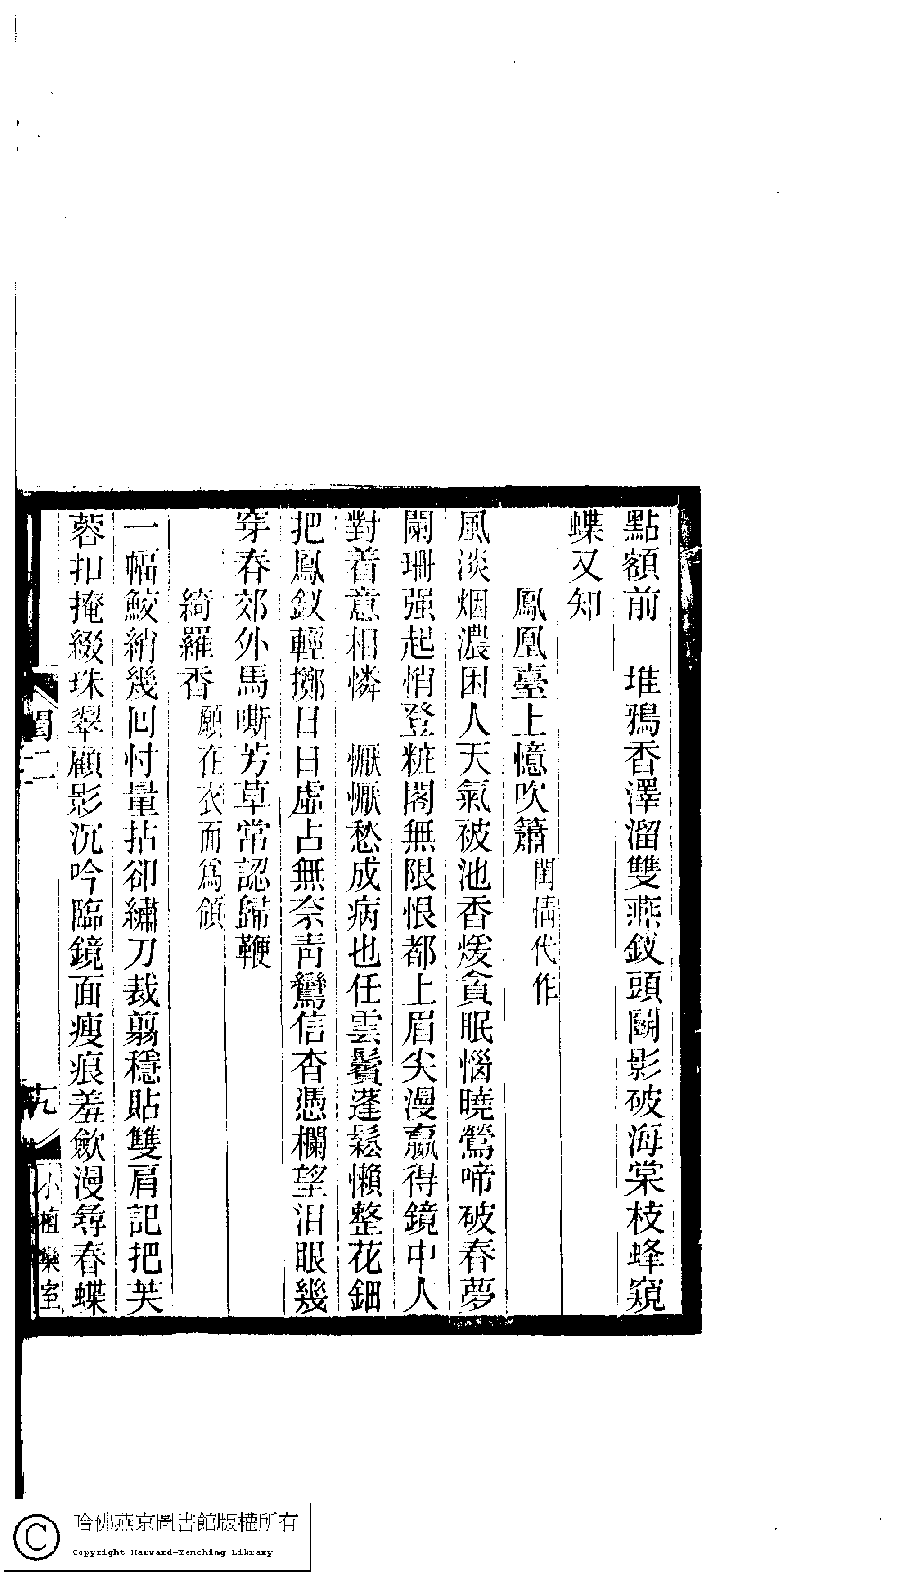 點額前　堆鴉香澤溜雙燕釵頭鬬影破海棠枝蜂窺
蝶又知
鳳凰臺上憶吹簫閨情代作
風淡烟濃困人天氣被池香煖貪眠惱曉鶯啼破春夢
闌珊强起悄登粧閣無限恨都上眉尖漫贏得鏡中人
對着意相憐　懨懨愁成病也任雲鬢蓬鬆懶整花鈿
把鳳釵輕擲日日虛占無奈靑鸞信杳憑欄望泪眼幾
穿春郊外馬嘶芳草常認歸鞭
綺羅香願在衣而爲領
一幅鮫綃幾回忖量拈卻繡刀裁翦穩貼雙肩記把芙
蓉扣掩綴珠翠顧影沉吟臨鏡面瘦痕羞歛漫尋春蝶
閨二
九
小檀欒室
哈佛燕京圖書館版權所有
Copyright Harvard-Yenching Library